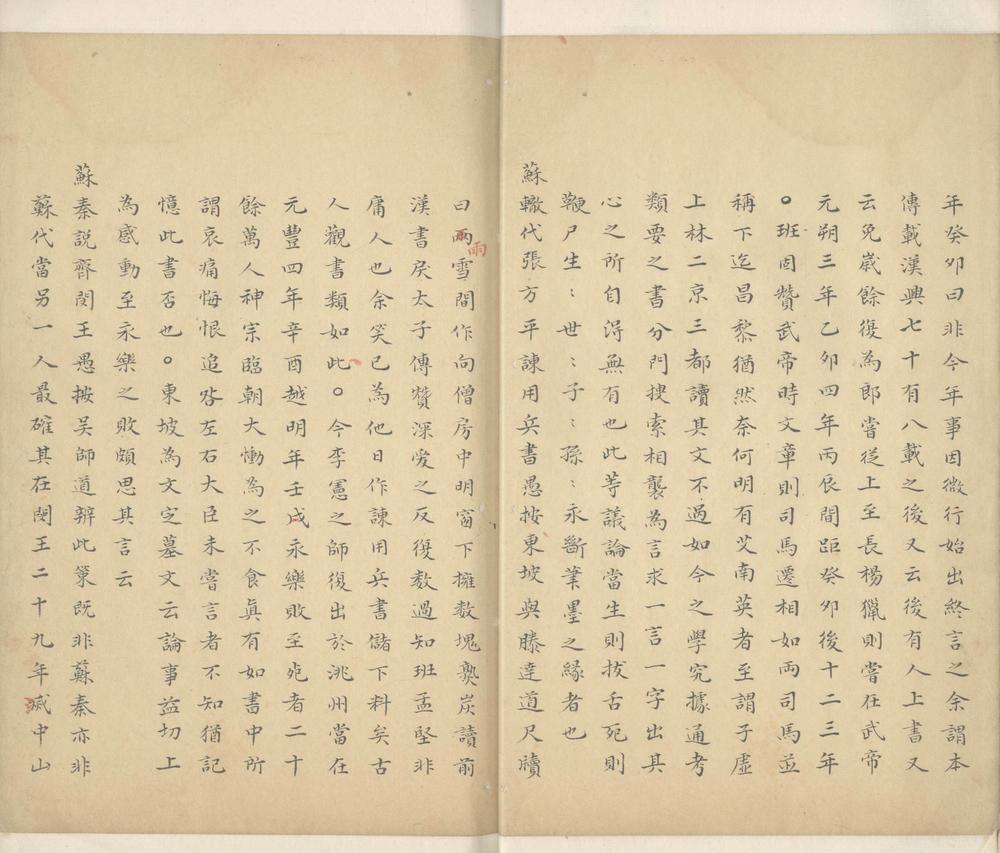 年癸夘曰非今年事因微行始出終言之余謂本
傳載漢興七十有八載之後又云後有人上書又
云免嵗餘復為郎嘗從上至長楊獵則嘗在武帝
元朔三年乙夘四年丙辰間距癸夘後十二三年
○班固贊武帝時文章則司馬遷相如兩司馬並
稱下迄昌黎猶然奈何明有艾南英者至謂子虛
上林二京三都讀其文不過如今之學究據通考
類要之書分門搜索相襲為言求一言一字出其
心之所自淂無有也此等議論當生則拔舌死則
鞭尸生〻世〻子〻孫〻永斷筆墨之緣者也
蘇轍代張方平諫用兵書愚按東坡與滕達道尺牘
曰雨雪間作向僧房中明窗下擁数塊熟炭讀前
雨
漢書戾太子傳贊深愛之反復数過知班孟堅非
庸人也余笑已為他日作諫用兵書儲下料矣古
人觀書類如此○今李憲之師復出於洮州當在
元豐四年辛酉越明年壬戌永樂敗至死者二十
餘萬人神宗臨朝大慟為之不食眞有如書中所
謂哀痛悔恨追咎左右大臣未嘗言者不知猶記
憶此書否也○東坡為文定墓文云論事益切上
為感動至永樂之敗頗思其言云
蘇秦説齊閔王愚按吴師道辨此䇿既非蘇秦亦非
蘇代當另一人最確其在閔王二十九年烕中山